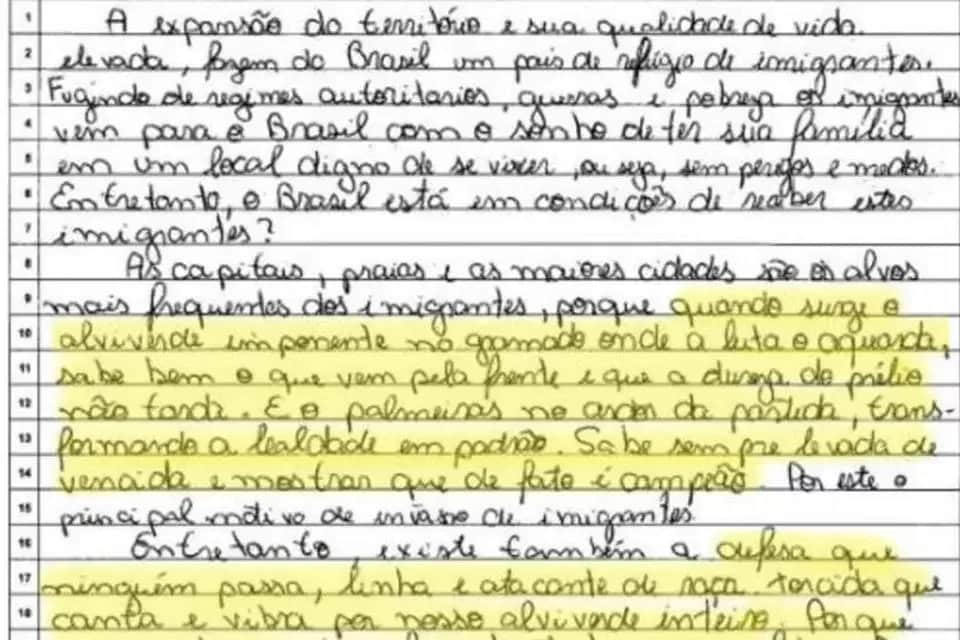 1 A expansão do território e sua qualidade de vida
2 elevada, fazem do Brasil um pais de refúgio de imigrantes.
3 Fugindo de regimes autoritarios, guerras e pobreza os imigrantes
4 vem para o Brasil com o sonho de ter sua família
5 em um local digno de se viver, ou seja, sem perigos e medos.
6 Entretanto, o Brasil está em condições de receber estes
7 imigrantes?
8 As capitais, praias e as maiores cidades são os alvos
9 mais frequentes dos imigrantes, porque quando surge o
10 alviverde imponente no gramado onde a luta o aguarda,
11 sabe bem o que vem pela frente e que a dureza do prélio
12 não tarda. E o palmeiras no ardor da partida, trans-
13 formando a lealdade em padrão. Sabe sempre levada de
14 vencida e mostrar que de fato é campeão. Por este o
15 principal motivo de invasão de imigrantes.
16 Entretanto, existe também a defesa que
17 ninguém passa, linha e atacante de raça. torcida que
18 canta e vibra por nosso alviverde inteiro. Por que